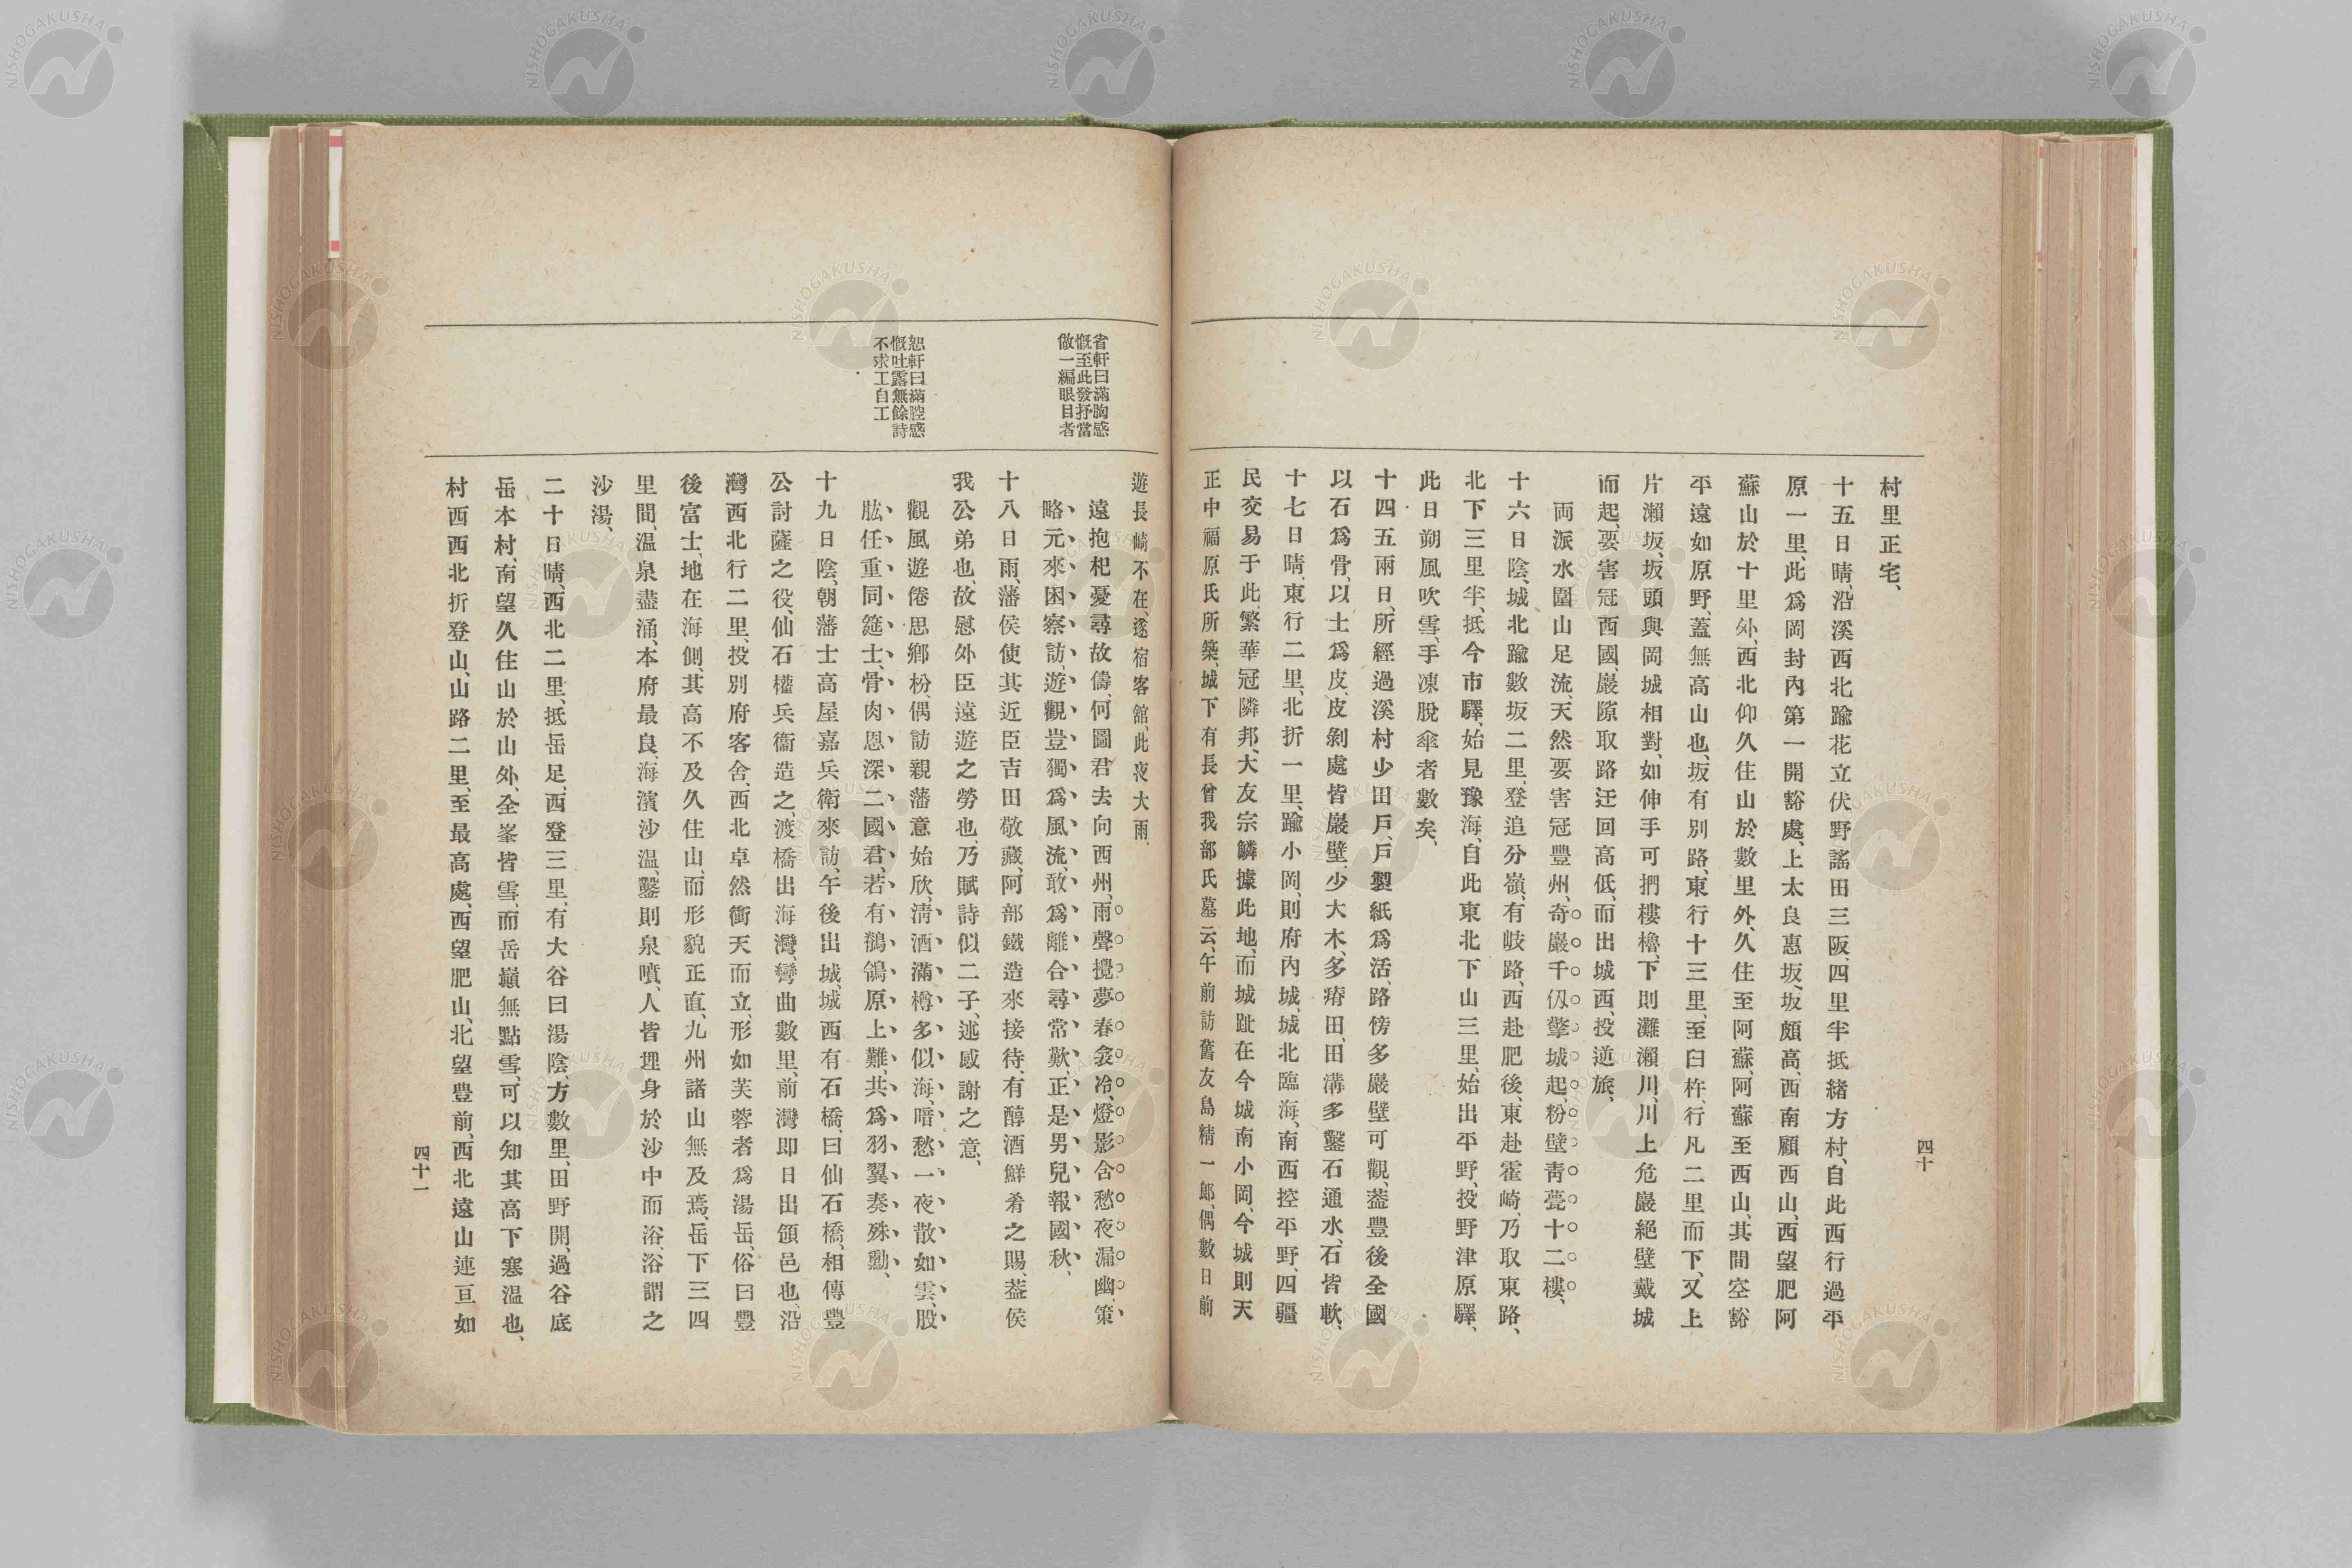 村里正宅、
十五日晴、沿溪西北踰花立伏野謠田三阪、四里半抵緒方村、自此西行過平
原一里、此爲岡封內第一開豁處、上太良惠坂、坂頗高、西南顧西山、西望肥阿
蘇山於十里外、西北仰久住山於數里外、久住至阿蘇、阿蘇至西山、其間空豁
平遠如原野、蓋無高山也、坂有別路、東行十三里、至臼杵、行凡二里而下、又上
片瀨坂、坂頭與岡城相對、如伸手可捫樓櫓、下則灘瀨川、川上危巖絕壁戴城
而起、要害冠西國、巖隙取路迂回高低、而出城西、投逆旅、
両派水圍山足流、天然要害冠豐州、奇巖千仭擎城起、粉壁靑甍十二樓、
十六日陰、城北踰數坂二里、登追分嶺、有岐路、西赴肥後、東赴霍崎、乃取東路、
北下三里半、抵今市驛、始見豫海、自此東北下山三里、始出平野、投野津原驛、
此日朔風吹雪、手凍脫傘者數矣、
十四五兩日、所經過溪村少田戶、戶製紙爲活、路傍多巖壁可觀、蓋豐後全國
以石爲骨、以土爲皮、皮剝處皆巖壁、少大木、多瘠田、田溝多鑿石通水、石皆軟、
十七日晴、東行二里、北折一里、踰小岡、則府內城、城北臨海、南西控平野、四疆
民交易于此、繁華冠隣邦、大友宗麟據此地、而城趾在今城南小岡、今城則天
正中福原氏所築、城下有長曾我部氏墓云、午前訪舊友島精一郎、偶數日前
四十
遊長崎不在、遂宿客舘、此夜大雨、
遠抱杞憂尋故儔、何圖君去向西州、雨聲攪夢春衾冷、燈影含愁夜漏幽、策
略元來困察訪、遊觀豈獨爲風流、敢爲離合尋常歎、正是男兒報國秋、
十八日雨、藩侯使其近臣吉田敬藏、阿部鐵造來接待、有醇酒鮮肴之賜、蓋侯
我公弟也、故慰外臣遠遊之勞也、乃賦詩似二子、述感謝之意、
觀風遊倦思鄕枌、偶訪親藩意始欣、淸酒滿樽多似海、暗愁一夜散如雲、股
肱任重同筵士、骨肉恩深二國君、若有鶺鴒原上難、共爲羽翼奏殊勳、
十九日陰、朝藩士高屋嘉兵衛來訪、午後出城、城西有石橋、曰仙石橋、相傳豐
公討薩之役、仙石權兵衞造之、渡橋出海灣、彎曲數里、前灣即日出領邑也、沿
灣西北行二里、投別府客舍、西北卓然衝天而立、形如芙蓉者爲湯岳、俗曰豐
後富士、地在海側、其高不及久住山、而形貌正直、九州諸山無及焉、岳下三四
里間、溫泉盡涌、本府最良、海濱沙溫、鑿則泉噴、人皆埋身於沙中而浴、浴謂之
沙湯、
二十日晴、西北二里、抵岳足、西登三里、有大谷曰湯陰、方數里、田野開、過谷底
岳本村、南望久住山於山外、全峯皆雪、而岳巓無點雪、可以知其高下寒溫也、
村西西北折登山、山路二里、至最高處、西望肥山、北望豊前、西北遠山連亘如
四十一
省軒曰滿胸感
慨至此發抒當
做一編眼目者
恕軒曰滿腔感
慨吐露無餘詩
不求工自工
NISHOGAKUSHA